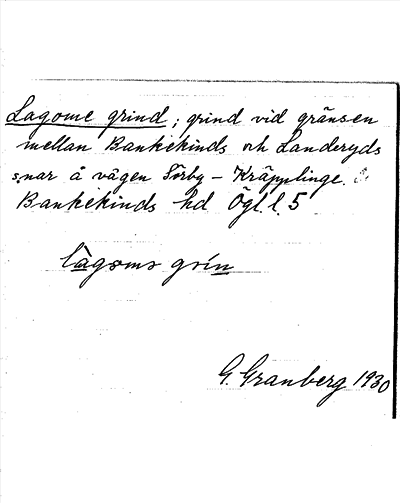 Lagome grind; grind vid gränsen
mellan Bankekinds och Landeryds
s:nar å vägen Törby - Kräpplinge.
Bankekinds hd Ögl. l. 5
làgoms grín
G. Granberg 1930